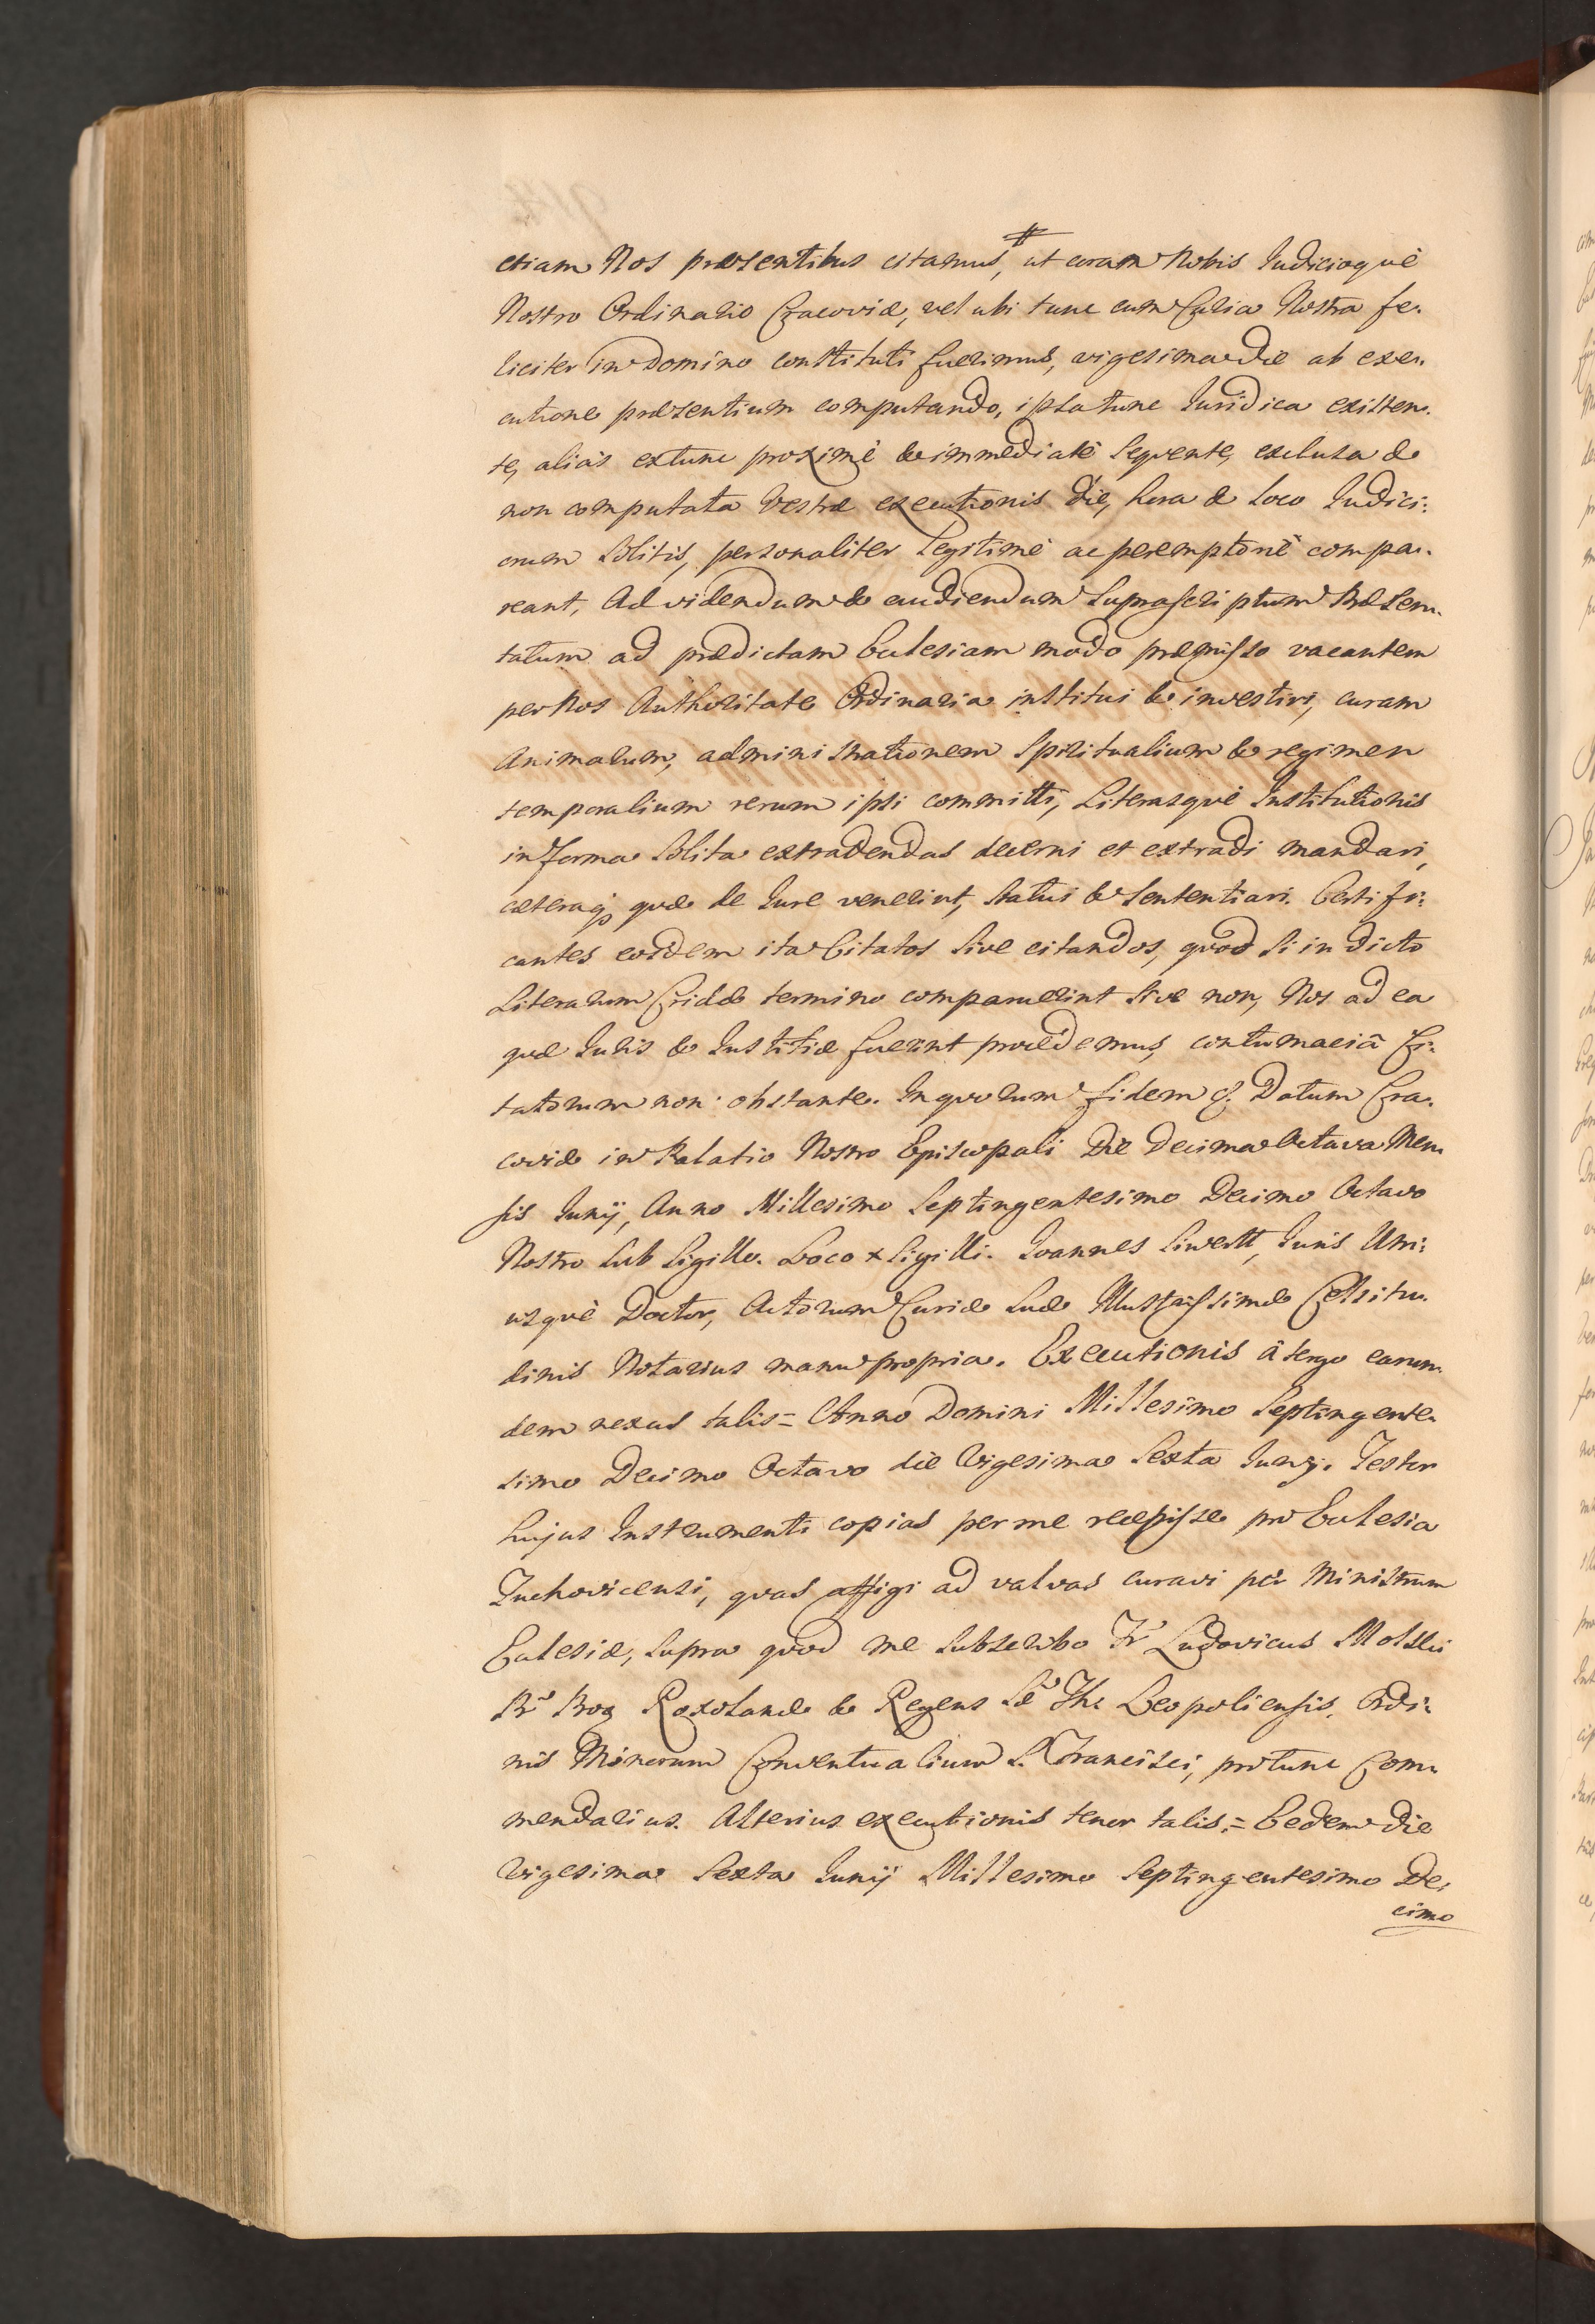 etiam Nos præsentibus citamus, ut coram Nobis Iudicioquè
Nostro Ordinario Cracoviæ, vel ubi tunc cum Curia Nostra fe-
liciter in Domino constituti fuerimus, vigesima die ab exe-
cutione præsentium computando, ipsa tunc Iuridica existen-
te, alias extunc proximè & immediatè sequente, exclusa &
non computata vestræ executionis die, hora & loco Iudici-
orum solitis, personaliter legitimè ac peremptoriè compa-
reant, Ad videndum & audiendum suprascriptum Præsen-
tatum ad prædictam Ecclesiam modo præmisso vacantem
per Nos Authoritate Ordinaria institui & investiri, curam
Animarum, administrationem Spiritualium & regimen
temporalium rerum ipsi committi, Literasquè Institutionis
in forma solita extradendas decerni et extradi mandari,
cæteraq quæ de Iure venerint, statui & sententiari. Certifi-
cantes eosdem ita Citatos sive citandos, quod si in dicto
Literarum Cridæ termino comparuerint sive non, Nos ad ea
quæ Iuris & Iustitiæ fuerint procedemus, contumaciâ Ci-
tatorum non obstante. In quorum fidem &. Datum Cra-
coviæ in Palatio Nostro Episcopali Die Decima Octava Men-
sis Iunij, Anno Millesimo Septingentesimo Decimo Octavo
Nostro sub Sigillo. Loco x Sigilli. Ioannes Siwertt, Iuris Utri-
usquè Doctor, Actorum Curiæ Suæ Illustrissimæ Celsitu-
dinis Notarius manu propria. Executionis à tergo earun-
dem nexus talis = Anno Domini Millesimo Septingente-
simo Decimo Octavo die Vigesima Sexta Iunij. Testor
hujus Instrumenti copias per me recepisse pro Ecclesia
Tuchovicensi, quas affigi ad valvas curavi per Ministrum
Ecclesiæ, supra quod me subscribo Fr Ludovicus
Roxolanæ & Regens Leopoliensis, Ordi-
nis Minorum Conventualium S. Francisci, pro tunc Com-
mendarius. Alterius executionis tenor talis = Eodem die
Vigesima Sexta Iunij Millesimo Septingentesimo De-
cimo